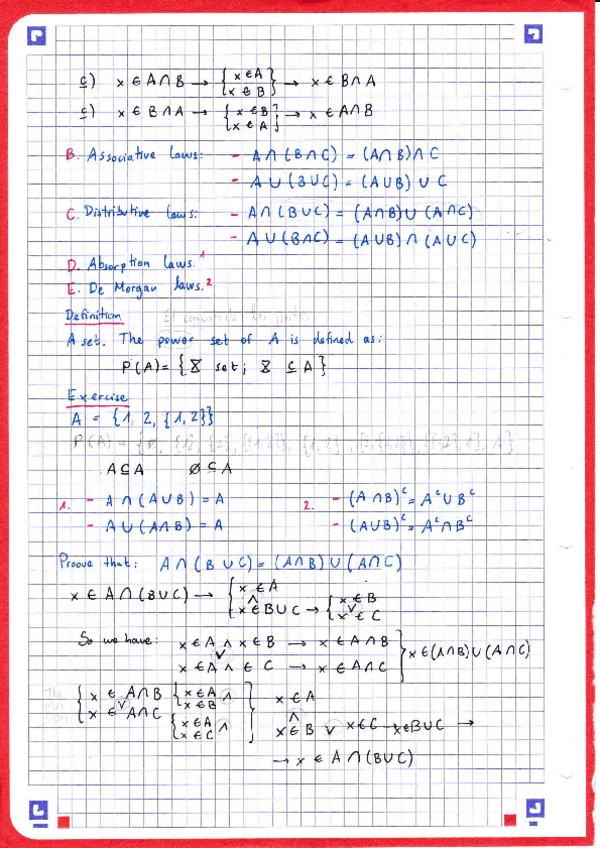 ⊆) x ∈ A∩B → { x ∈ A x ∈ B } → x ∈ B∩A
⊆) x ∈ B∩A → { x ∈ B x ∈ A } → x ∈ A∩B
B. Associative laws: - A∩(B∩C) = (A∩B)∩C
- A∪(B∪C) = (A∪B)∪C
C. Distributive laws: - A∩(B∪C) = (A∩B)∪(A∩C)
- A∪(B∩C) = (A∪B)∩(A∪C)
D. Absorption laws.1
E. De Morgan laws.2
Definition
A set. The power set of A is defined as:
P(A) = { X set; X ⊆ A }
Exercise
A = {1, 2, {1,2}}
A ⊆ A ∅ ⊆ A
1. - A∩(A∪B) = A 2. - (A∩B)ᶜ = Aᶜ∪Bᶜ
- A∪(A∩B) = A - (A∪B)ᶜ = Aᶜ∩Bᶜ
Proove that: A∩(B∪C) = (A∩B)∪(A∩C)
x ∈ A∩(B∪C) → { x ∈ A
∧
x ∈ B∪C → { x ∈ B ∨ x ∈ C
So we have: x ∈ A ∧ x ∈ B → x ∈ A∩B } x ∈ (A∩B)∪(A∩C)
∨
x ∈ A ∧ ∈ C → x ∈ A∩C
{ x ∈ A∩B { x ∈ A ∧ x ∈ B ] x ∈ A
∨ ∧
x ∈ A∩C { x ∈ A ∧ x ∈ C x ∈ B ∨ x ∈ C → x ∈ B∪C →
→ x ∈ A∩(B∪C)